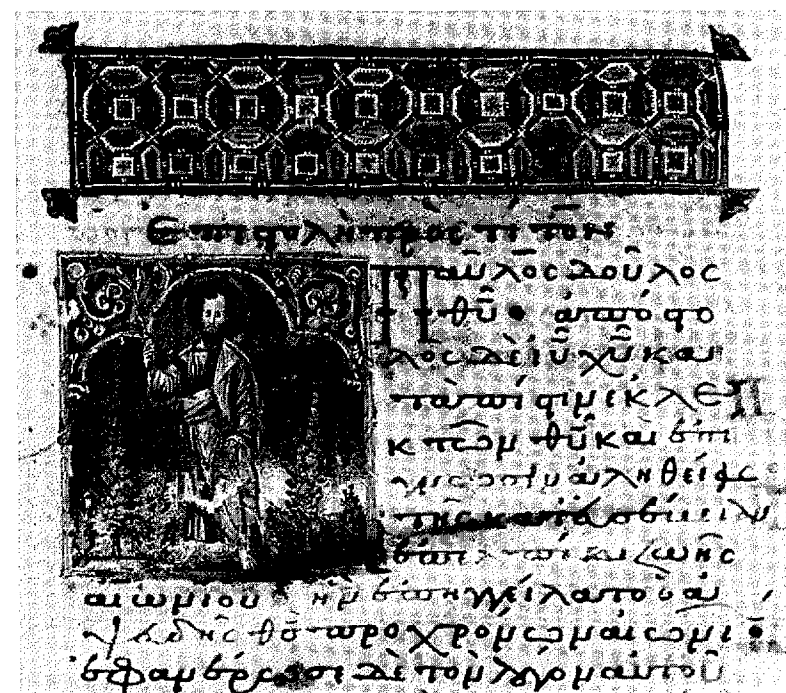 Επιστολὴ πρὸς τίτον
Παῦλος δοῦλος
θῦ· ἀπόστο
λος δὲ ἰῦ χῦ και
τὰ πίστιν ἐκλε
κτῶν θῦ καὶ ἐπι
γνωσιν ἀληθείας
τῆς κατ εὐσέβειαν
ἐπ ἐλπίδι ζωῆς
αἰωνίου· ἣν ἐπηγγείλατο ὁ ἀ
ψευδὴς θσ πρὸ χρόνων αἰωνι
ἐφανέρωσε δὲ τὸν λόγον αὐτοῦ